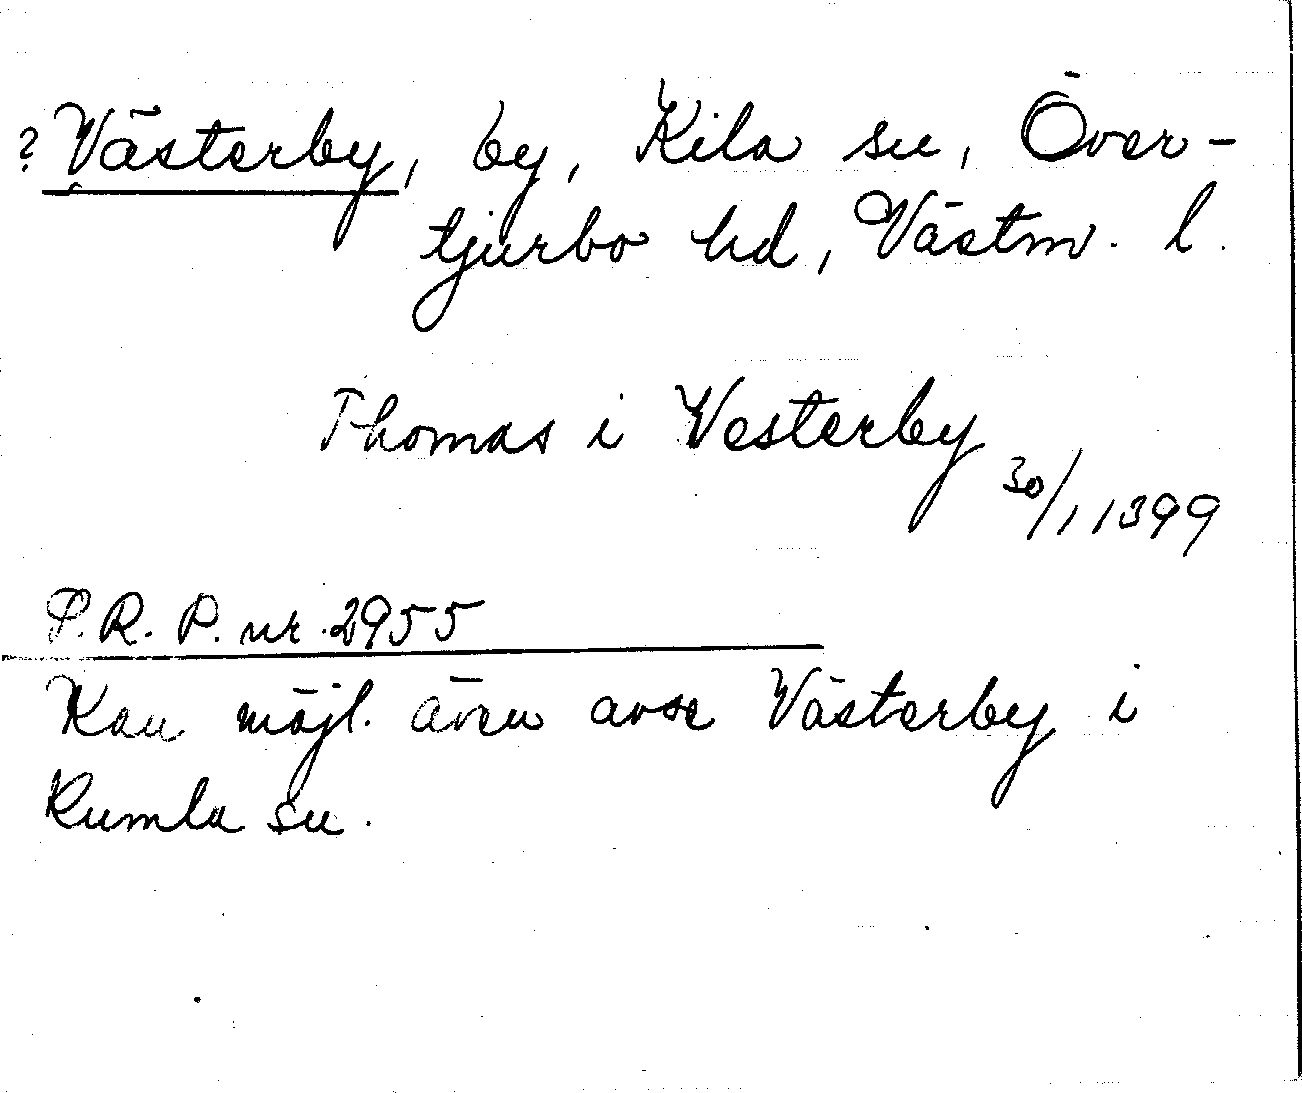 ? Västerby, by, Kila sn, Över-
tjurbo hd, Västm. l.
Thomas i Vesterby
30/1 1399
S.R.P. nr. 2955
Kan möjl. även avse Västerby i
Kumla sn.